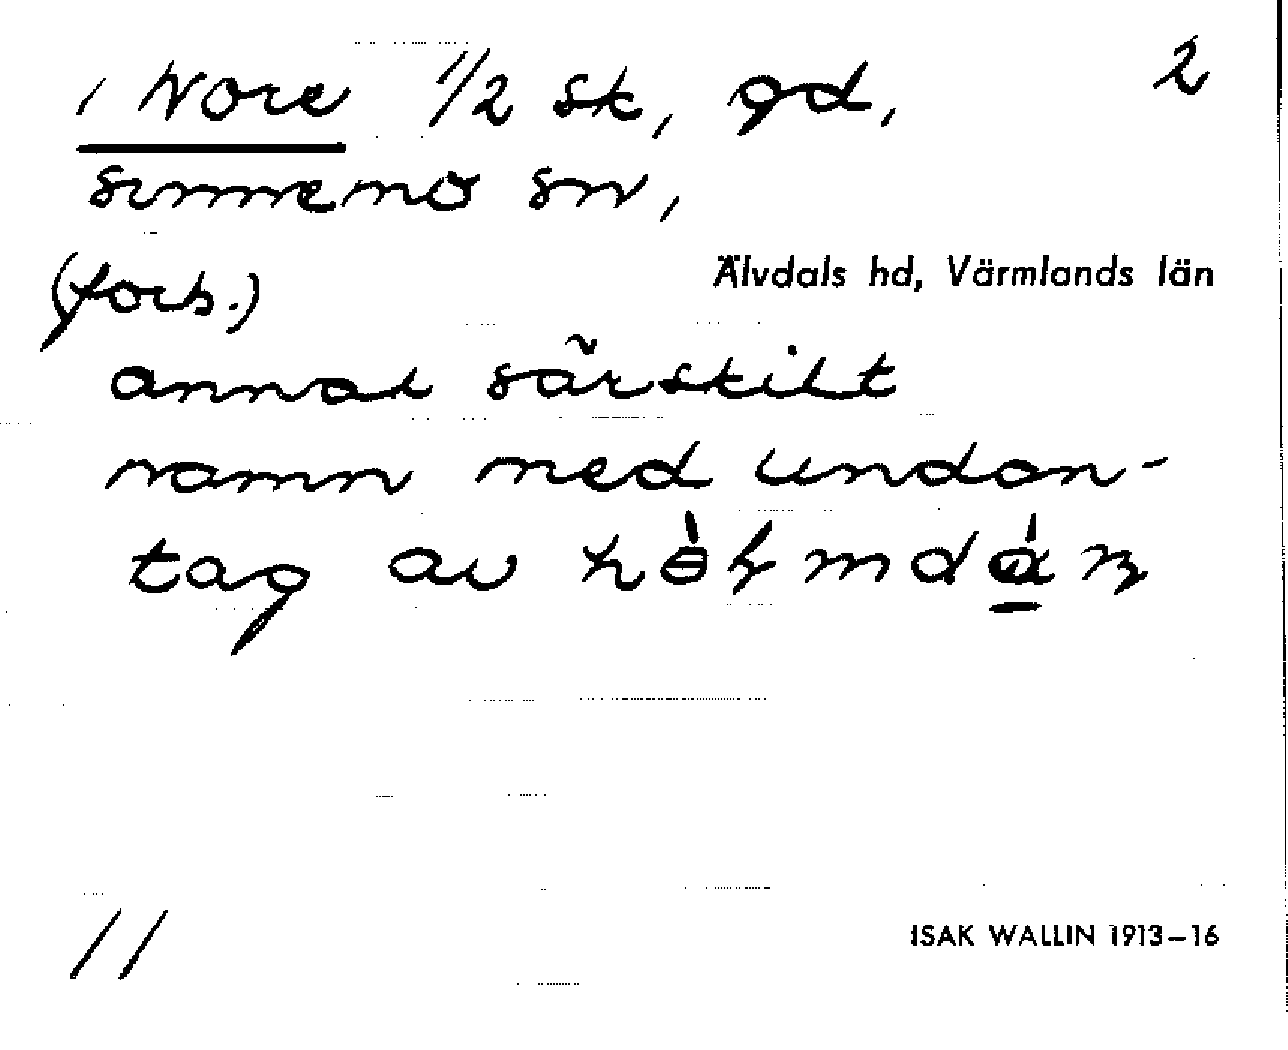 1 Nore 1/2 sk, gd, 2
Sunnemo sn,
(forts.)
Älvdals hd, Värmlands län
annat särskilt
namn med undan-
tag av
11
ISAK WALLIN 1913–16